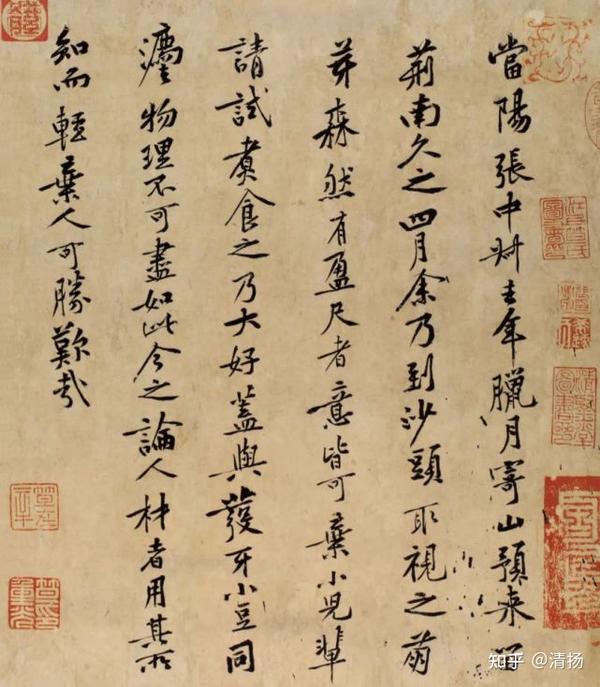 當陽張中叔去年臘月寄山預來留
荊南久之四月余乃到沙頭取視之萌
芽森然有盈尺者意皆可棄小兒輩
請試煮食之乃大好蓋與發牙小豆同
灋物理不可盡如此今之論人材者用其所
知而輕棄人可勝歎哉
知乎 @清扬